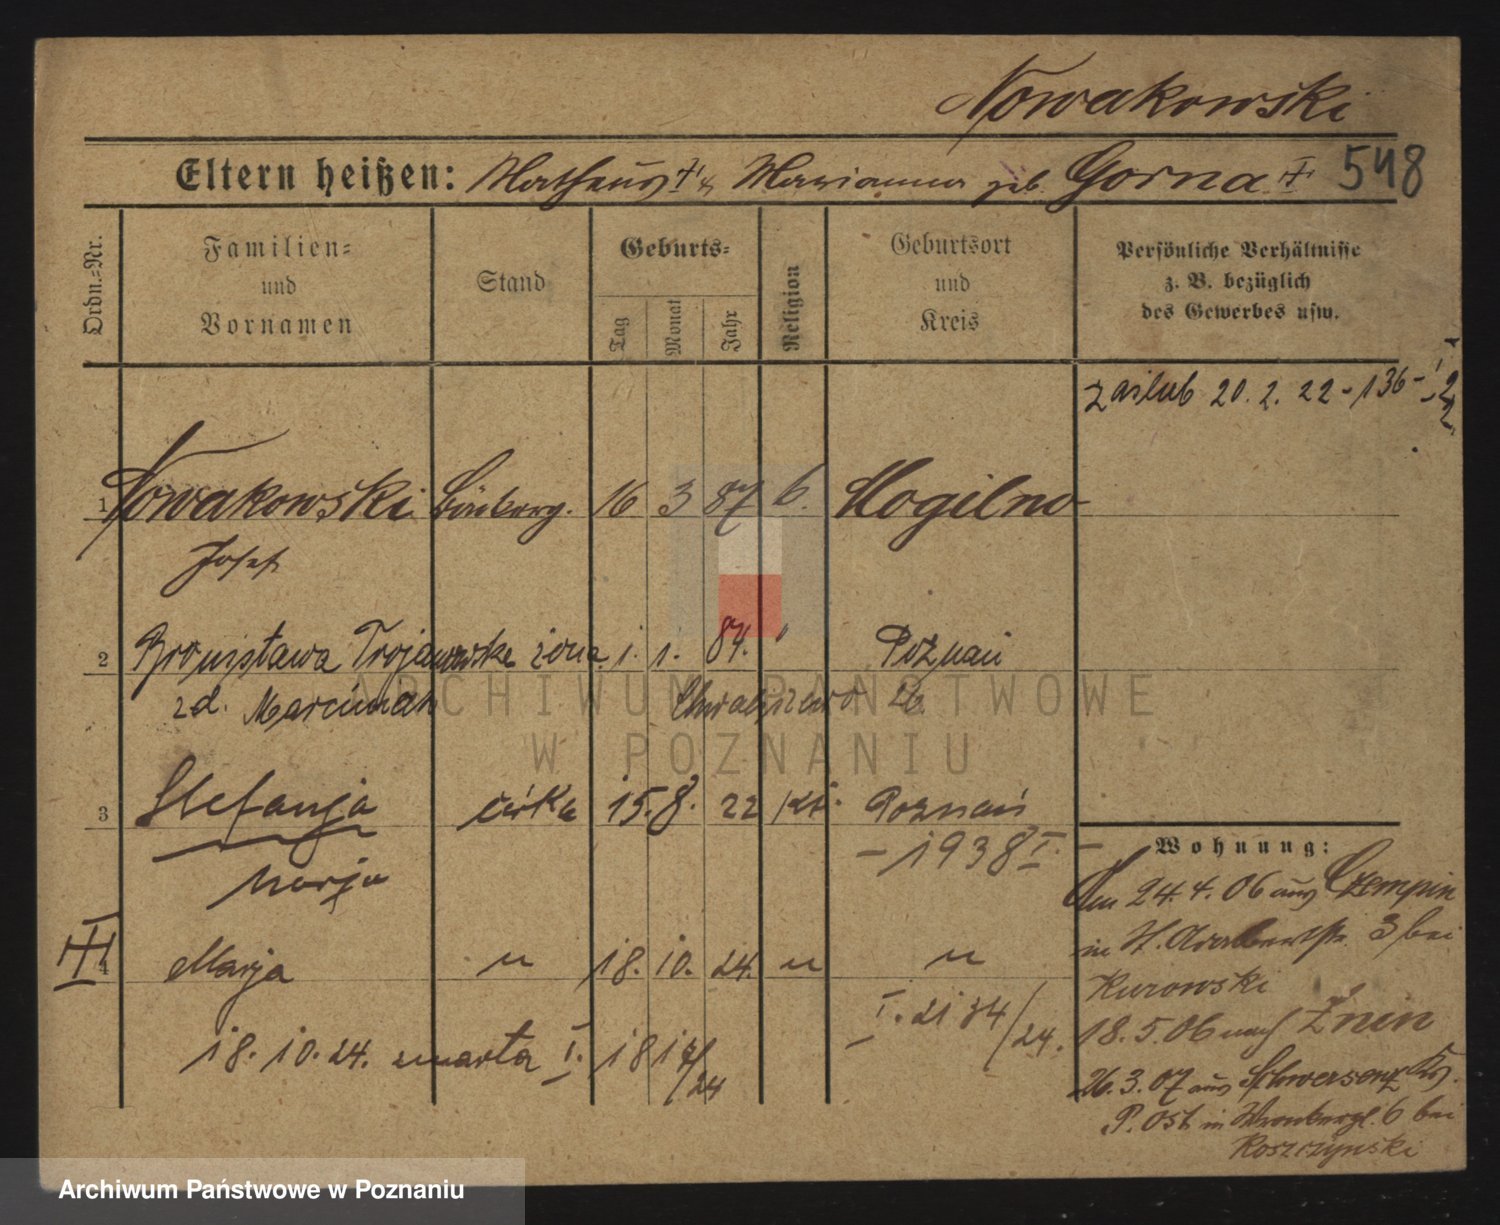 Nowakowski
Eltern heißen: Mathaus † & Marianna geb. Gorna † 548
Ordn.-Nr.
Familien-
und
Vornamen
Stand
Geburts-
Tag
Monat
Jahr
Religion
Geburtsort
und
Kreis
Persönliche Verhältnisse
z. B. bezüglich
des Gewerbes usw.
zaślub 20. 2. 22 - 136 -
1 Nowakowski 16 3 87 Mogilno
Josef
2 Bronisława Trojanowska żona 1. 1. 84. " Poznań
zd. Marciniak Chwaliszewo
3 Stefanja córka 15. 8. 22 kt. Poznań
Marja
- 1938 I. -
4 Marja " 18. 10. 24. " "
I. 2134/24.
18. 10. 24. zmarła I. 1817/24
Wohnung:
Am 24. 4. 06 aus Czempin
in St. Adalbertstr. 3 bei
Kurowski
18. 5. 06 nach Żnin
26. 3. 07 aus Schwersenz Krs.
P. Ost in Wronkerpl. 6 bei
Koszczynski
ARCHIWUM PAŃSTWOWE
W POZNANIU
Archiwum Państwowe w Poznaniu